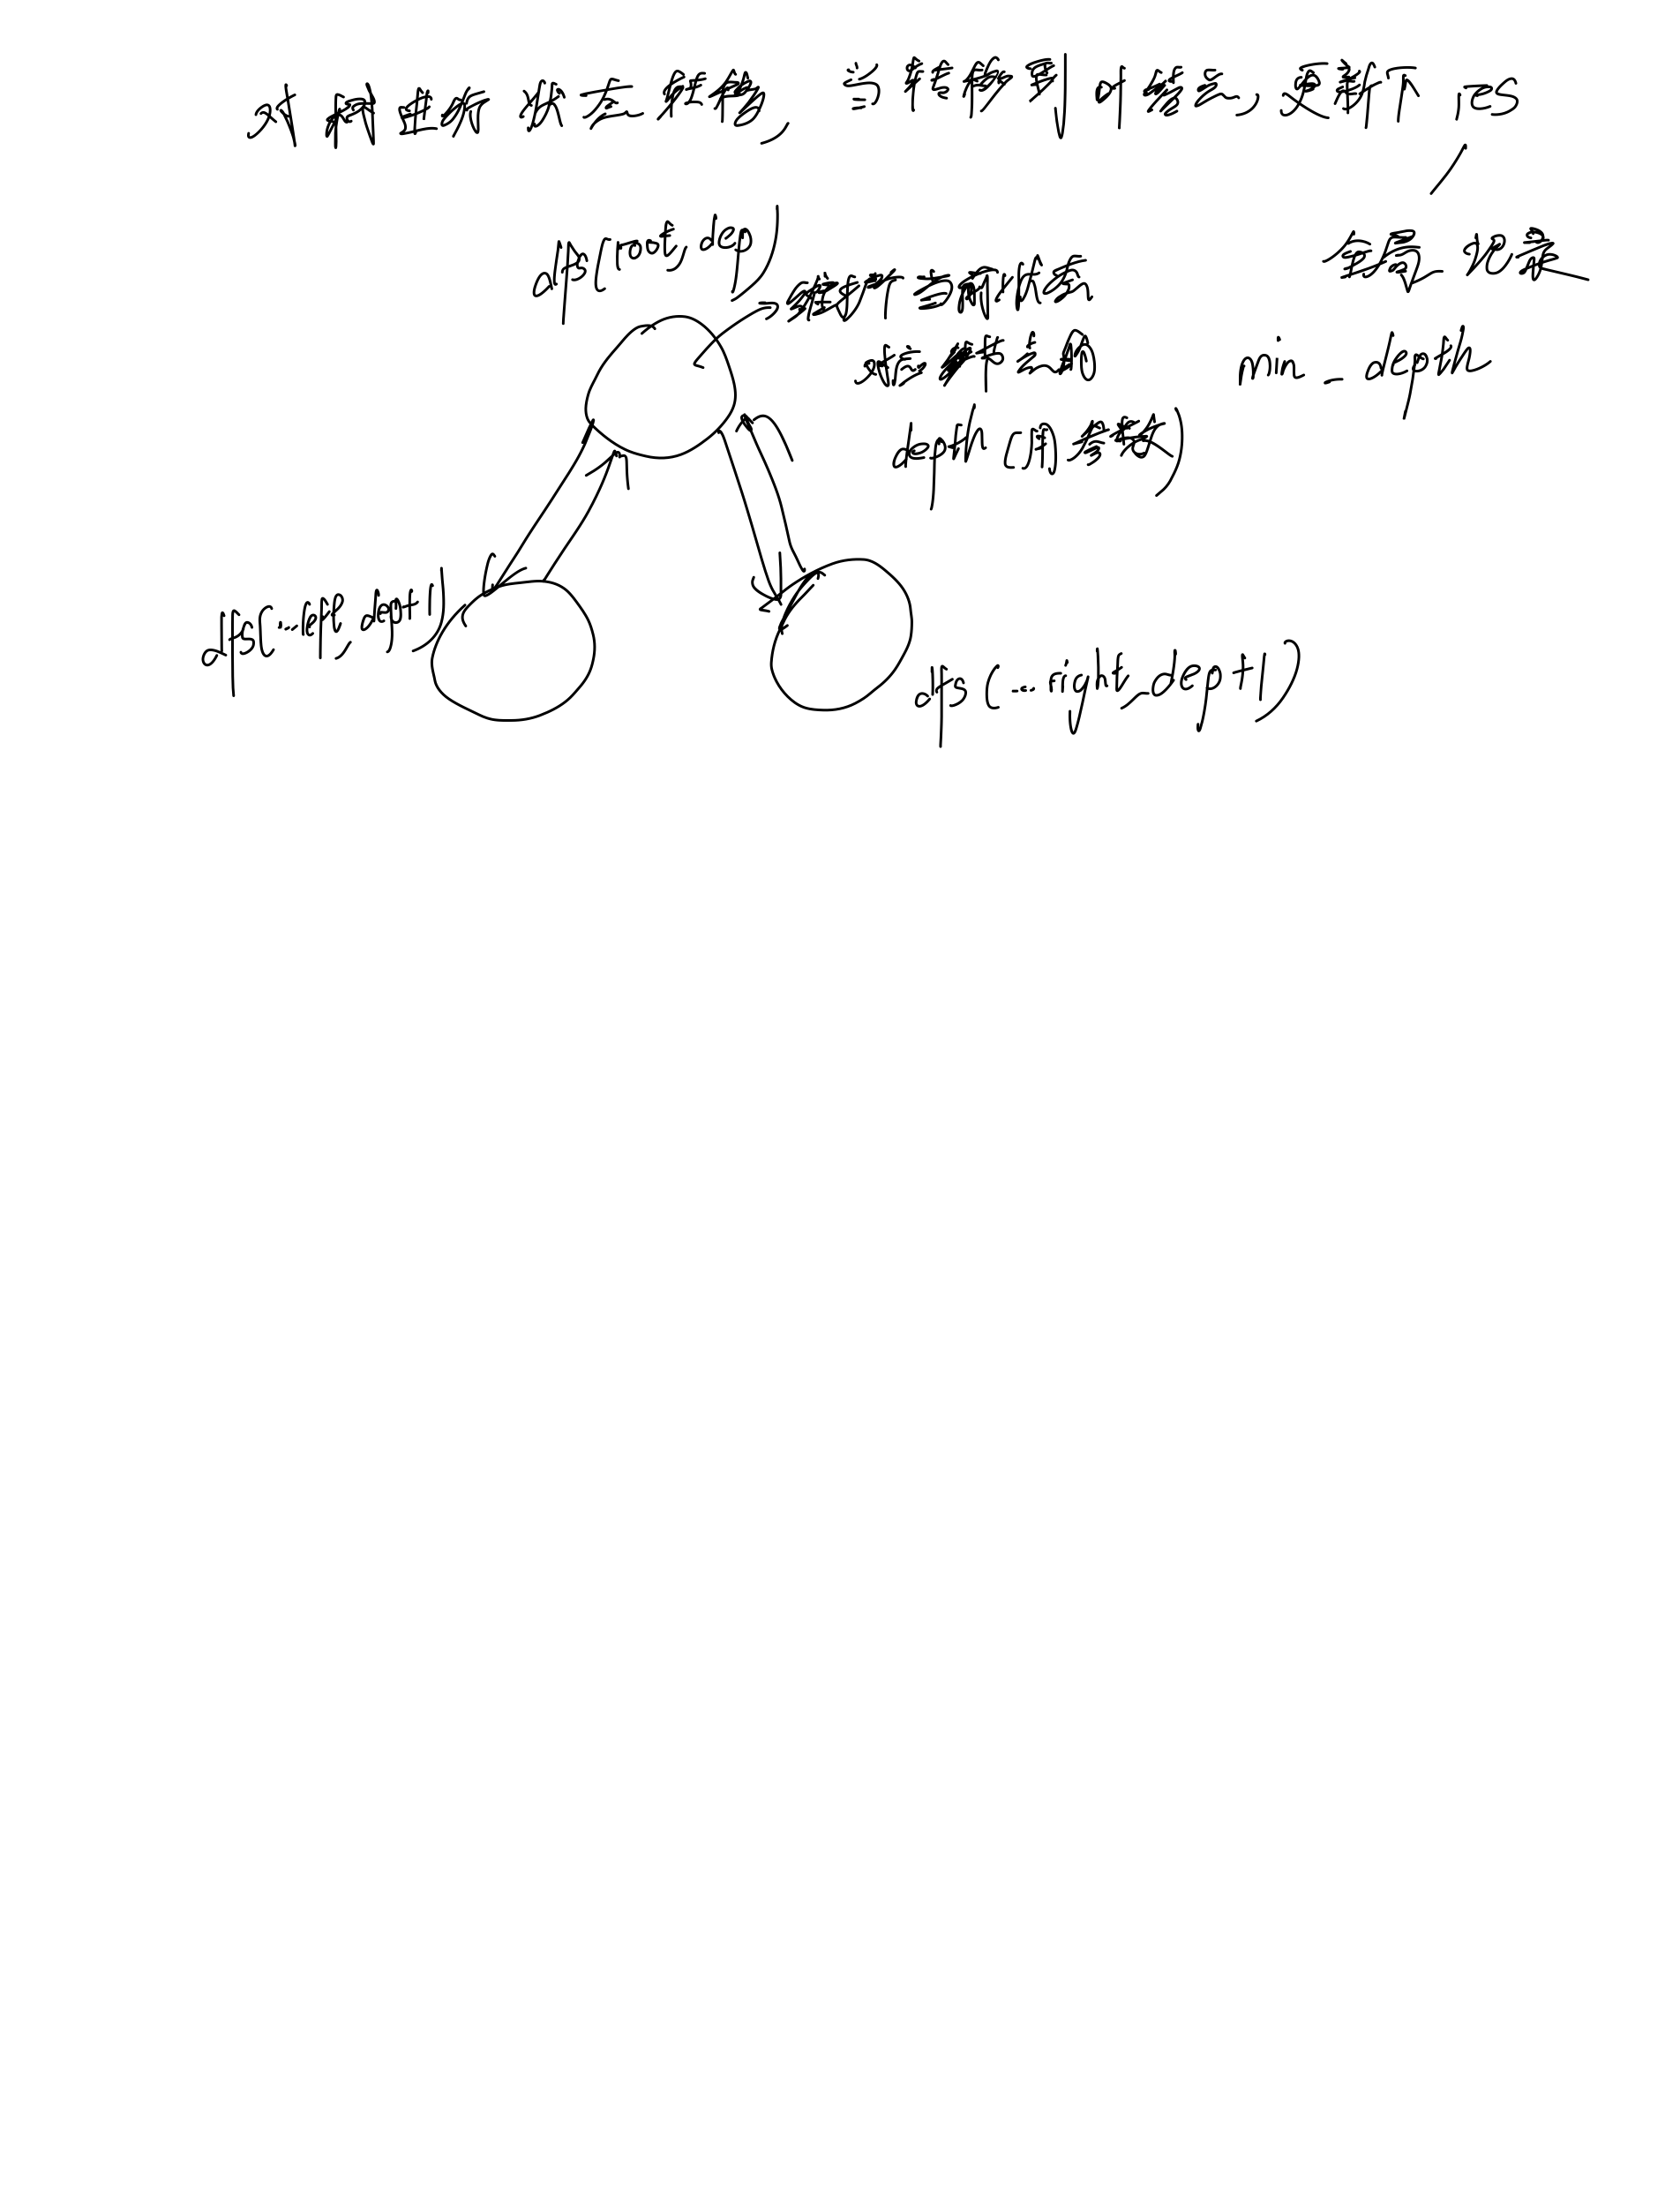 对树进行状态转移, 当转移到叶结点, 更新下 res
全局 记录
min_depth
dfs(root, dep)
维护当前状态
对应结点的
depth (用参数)
dfs(...left, dep+1)
dfs(...right, dep+1)